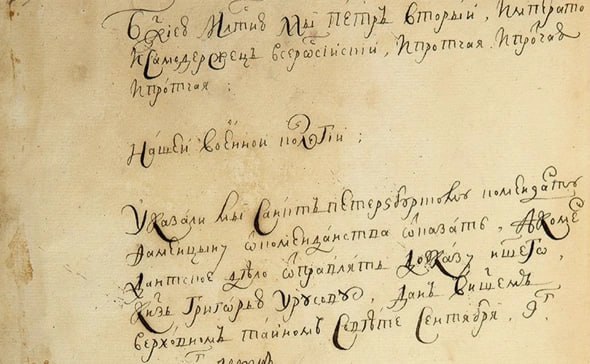 Бжиєю Млтию Мы Пєтръ вторый, Императо
и Самодержецъ всеросiйскiй, и протчая и протчая
и протчая :
Нашей военной колегiи :
Указали мы Санктъ петерзбургскому коменданту
от комендантства отказать, а коме
дантское дело отправлять до указу ншего,
Кнзь Григорью Урусову, данъ в ншемъ
верховномъ тайномъ Совете Сентября, 9г